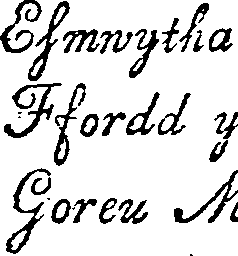 Eſmwytha
Ffordd y
Goreu M